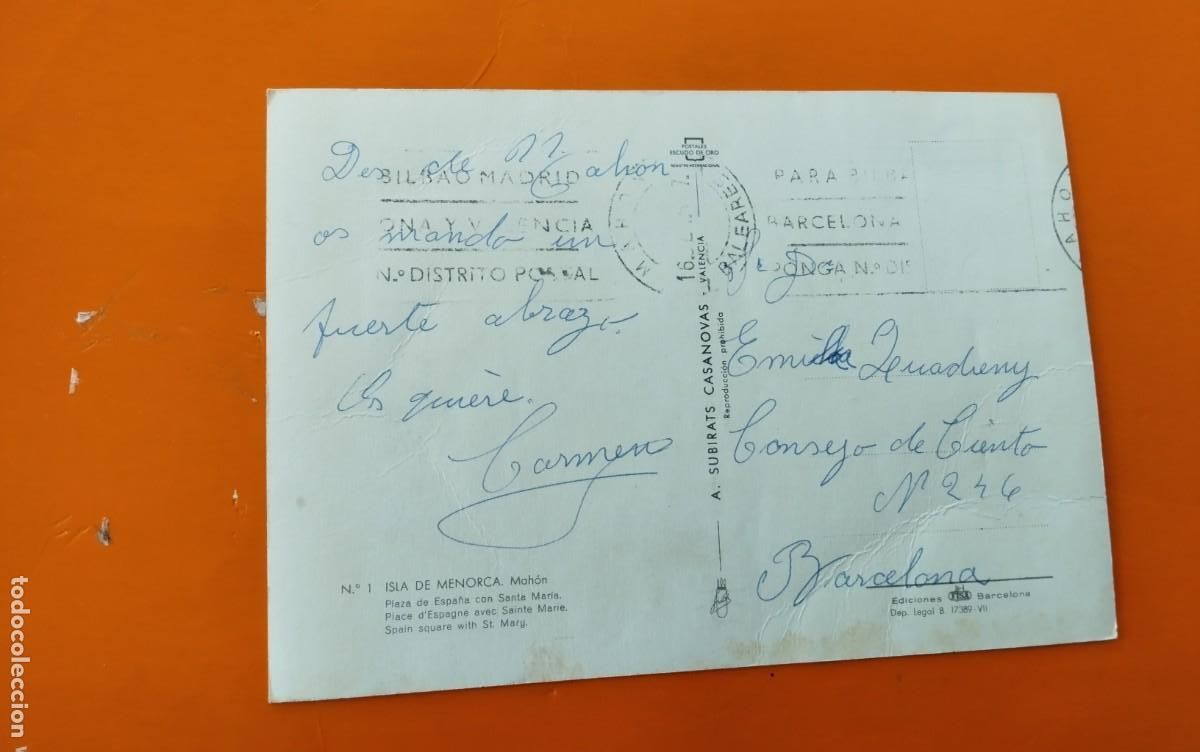 Desde Mahón
os mando un
fuerte abrazo.
Os quiere.
Carmen
N.º 1 ISLA DE MENORCA. Mahón
Plaza de España con Santa María.
Place d'Espagne avec Sainte Marie.
Spain square with St. Mary.
BILBAO MADRID
ONA Y VALENCIA
N.º DISTRITO POSTAL
POSTALES
ESCUDO DE ORO
A. SUBIRATS CASANOVAS - VALENCIA
Reproducción prohibida
BALEARES
16
PARA BILBA
BARCELONA
PONGA N.º DIS
AHO
Emilia Quadreny
Consejo de Ciento
Nº 246
Barcelona
Ediciones FISA Barcelona
Dep. Legal B. 17389-VII
todocoleccion